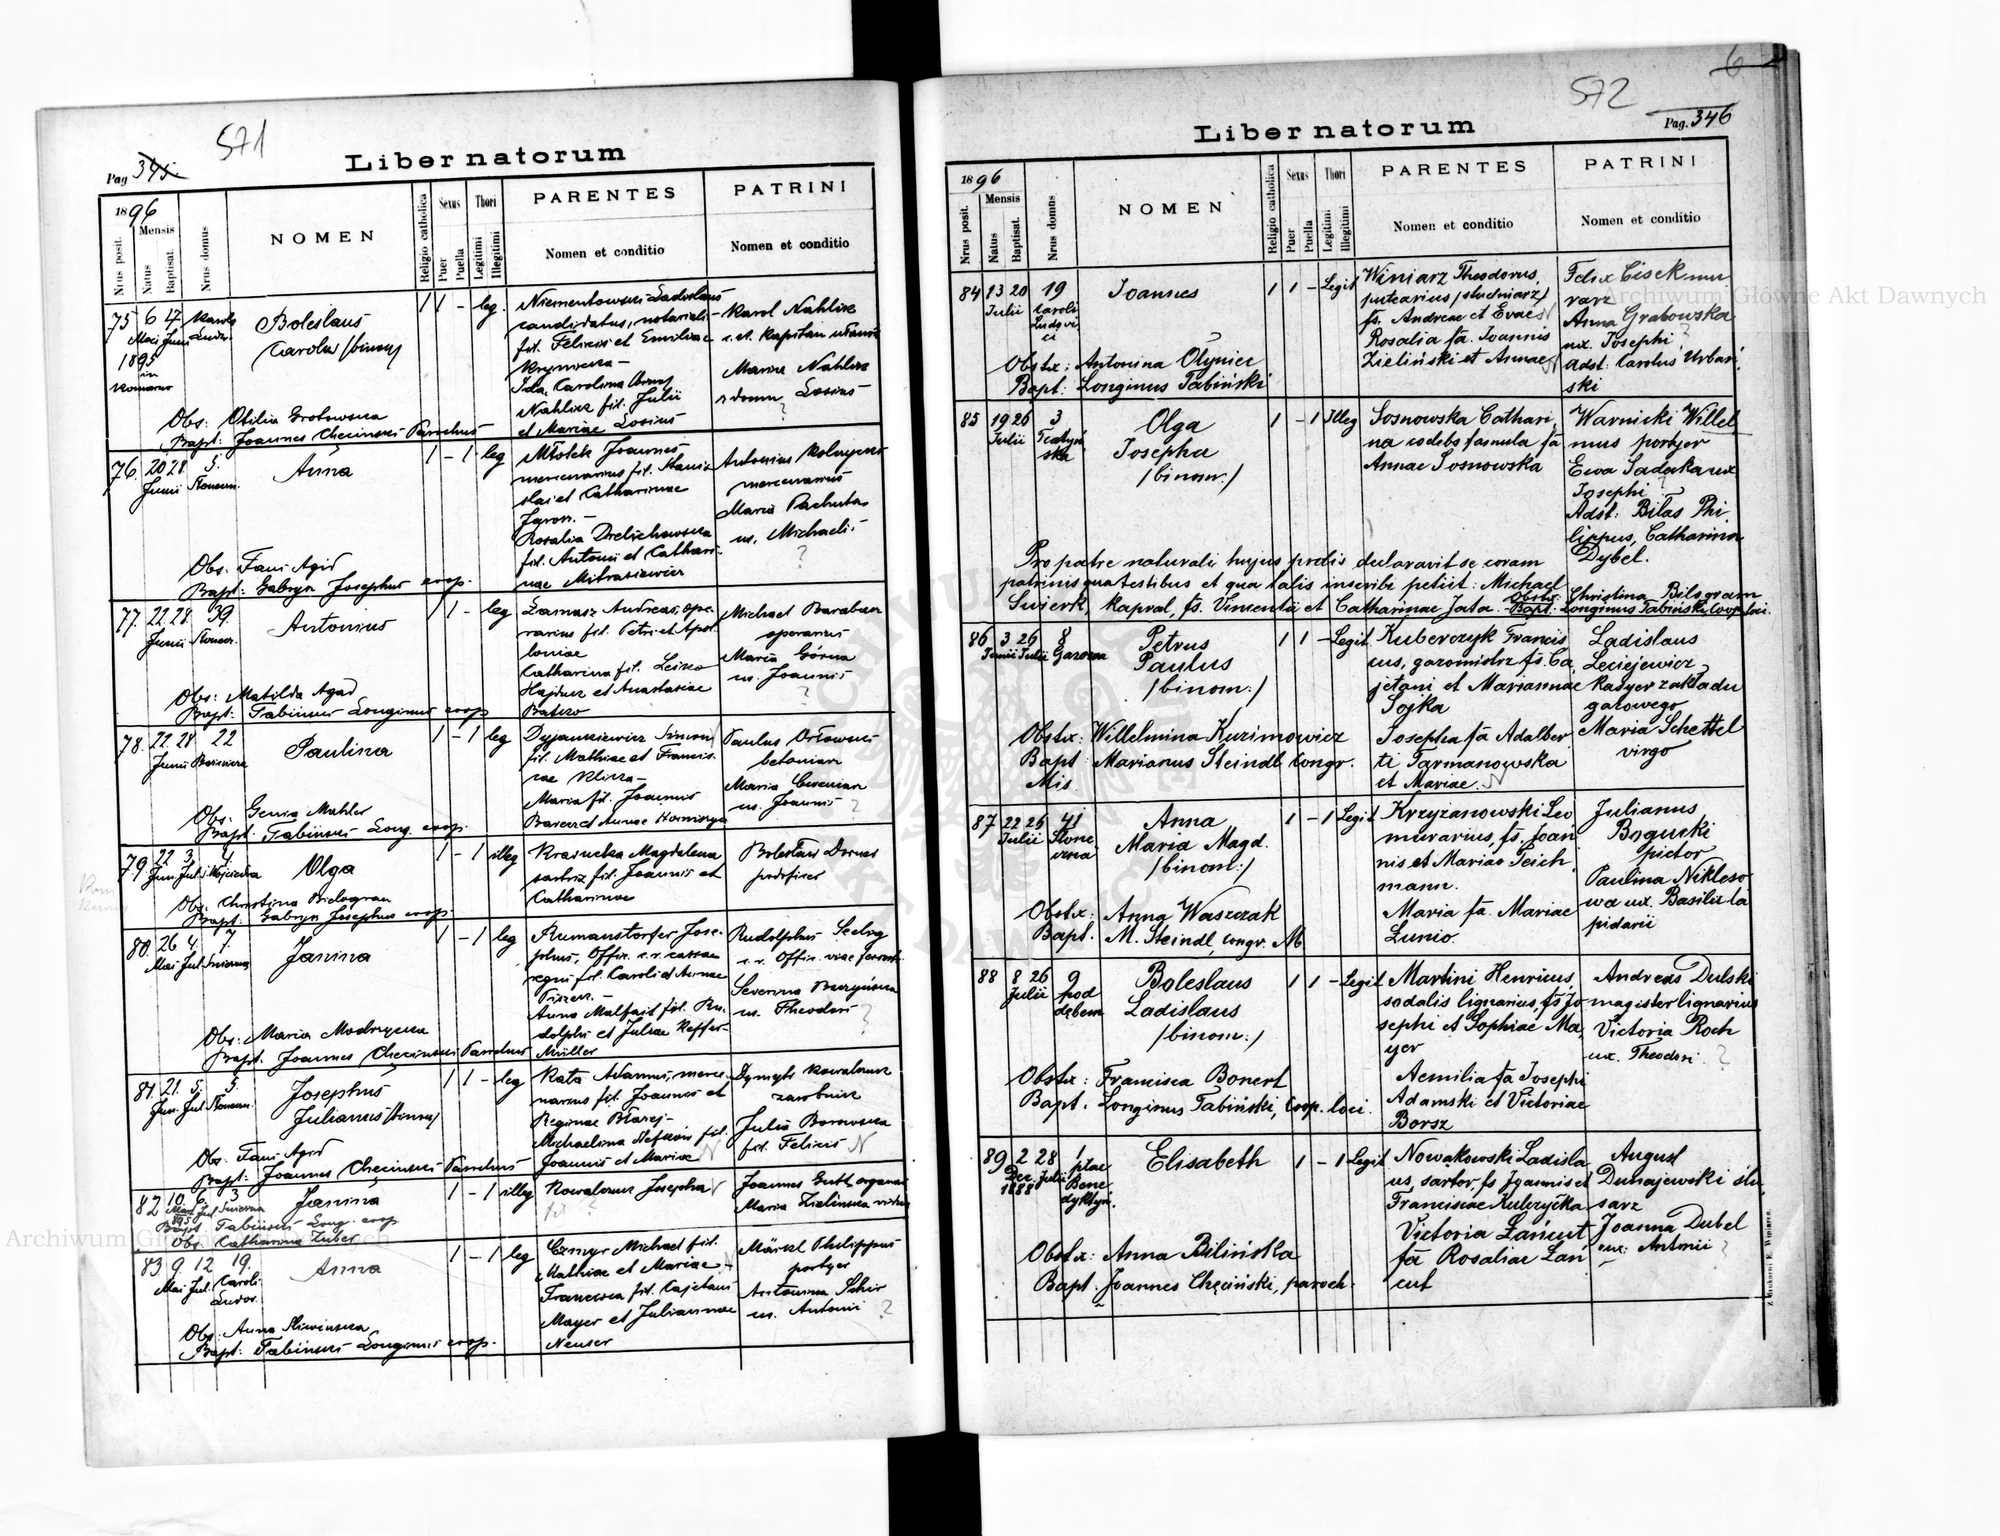 571
Pag 345.
Liber natorum
1896
Nrus posit.
Mensis
Natus
Baptisat.
Nrus domus
NOMEN
Religio catholica
Sexus
Puer
Puella
Thori
Legitimi
Illegitimi
PARENTES
Nomen et conditio
PATRINI
Nomen et conditio
75 6 17
Maj Junii
1895
in
Boleslaus
Carolus /binom/
1 1 - leg.
Niementowski Ladislaus
candidatus notariali
fil. Felicis et Emiliae
Krynicka –
Ida, Carolina
Nahlik fil. Julii
et Mariae Losius
Karol Nahlik
c. et. Kapitan
Maria Nahlik
z domu Losius
?
Obs: Otilia Grotowska
Bapt: Joannes Checinski Parochus
76. 20 28 5.
Junii Slonecz.
Anna
1 - 1 leg
Mlotek Joannes
mercenarius fil. Stanis
slai et Catharinae
Jaron. –
Rosalia Drelichowska
fil. Antonii et Cathari
nae Mitrasiewicz
Antonius
mercenarius
Maria Pachuta
ux. Michaelis
?
Obs: Fani Agid
Bapt: Gabryn Josephus coop.
77. 22 28 39.
Junii Slonecz.
Antonius
1 1 - leg
Andreas, ope
rarius fil. Petri et Apol
loniae
Catharina fil.
Hajduk et Anastasiae
Batko
Michael Baraban
operarius
Maria Górna
ux. Joannis
?
Obs: Matilda Agid
Bapt: Tabinski Longinus coop
78. 22 28 22
Junii
Paulina
1 - 1 leg
Simon
fil. Mathiae et Francis
cae Klina –
Maria fil. Joannis
et Annae
Paulus Orlowski
betoniarz
Maria
ux. Joannis
?
Obs: Genia Mahler
Bapt: Tabinski Long. coop.
79 22 3 4.
Jun. Jul.
Olga
1 - 1 illeg
Krasucka Magdalena
sartrix fil. Joannis et
Catharinae
Boleslaus
Obs: Christina Bielogran
Bapt: Gabryn Josephus coop.
80. 26 4 7.
Mai Jul.
Janina
1 - 1 leg
Rumanstorfer Jose-
phus, Offic. c.r. cassae
regni fil. Caroli et Annae
Anna Malfait fil. Ru-
dolphi et Juliae Keffer-
Müller
Rudolphus Seelig
c.r. Offic. viae ferreae
Severina
ux. Theodori
?
Obs: Maria Modrzycka
Bapt. Joannes Checinski Parochus
81. 21. 5. 5.
Jun. Jul. Slonecz.
Josephus
Julianus /binom/
1 1 - leg
Kata Adamus, merce-
narius fil. Joannis et
Reginae
Michaelina fil.
Joannis et Mariae N
Dymytr Kowalczuk
zarobnik
Julia Borowska
fil. Felicis N
Obs. Fani Agid
Bapt: Joannes Checinski Parochus
82 10 6. 3
Janina
1 - 1 illeg
Josepha
Joannes Guth organar
Maria Zielinska virgo
Bapt. Tabinski Long. coop
Obs. Catharina Zuber
83. 9. 12 19.
Mai Jul. Caroli
Ludov.
Anna
1 - 1 leg
Michael fil.
Mathiae et Mariae –
Francisca fil. Cajetani
Mayer et Juliannae
Neuser
Märzl Philippus
portyer
Antonina Schir
ux. Antonii ?
Obs: Anna Sliwinska
Bapt: Tabinski Longinus coop.
572
6
Pag. 346
Liber natorum
1896
Nrus posit.
Mensis
Natus
Baptisat.
Nrus domus
NOMEN
Religio catholica
Sexus
Puer
Puella
Thori
Legitimi
Illegitimi
PARENTES
Nomen et conditio
PATRINI
Nomen et conditio
84 13 20 19
Julii Caroli
Ludovi
ci
Joannes
1 1 - Legit
Winiarz Theodorus,
putearius /studniarz/
fs. Andreae et Evae N
Rosalia fa. Joannis
Zieliński et Annae N
Felix Cisek mu
rarz
Anna Grabowska
ux. Josephi ?
Adst: Carolus Urbań
ski
Obstx: Antonina Olyniec
Bapt: Longinus Tabiński
85 19 26 3
Julii Teatyń
ska
Olga
Josepha
/binom:/
1 - 1 Illeg
Sosnowska Cathari
na coelebs famula fa
Annae Sosnowska
Warnicki Willel
mus portyer
Ewa Sadaka ux
Josephi ?
Adst: Bilas Phi
lippus, Catharina
Dybel.
Pro patre naturali hujus prolis declaravit se coram
patrinis qua testibus et qua talis inscribi petiit: Michael
Swierk, kapral, fs. Vincentii et Catharinae Jata. Obstx: Christina Bilogram
Bapt: Longinus Tabiński Coop. loci.
86 3 26 8
Junii Julii Gazowa
Petrus
Paulus
/binom:/
1 1 - Legit
Kuberczyk Francis
cus, gazomistrz fs. Ca
jetani et Mariannae
Sojka
Josepha fa Adalber
ti Tarmanowska
et Mariae. N
Ladislaus
Leciejewicz
kasyer zakładu
gazowego
Maria Schettel
virgo
Obstx: Willelmina Kuzimowicz
Bapt Marianus Steindl Congr.
Mis.
87 22 26 41
Julii Słone
czna
Anna
Maria Magd.
/binom:/
1 - 1 Legit
Krzyżanowski Leo
murarius, fs. Joan
nis et Mariae Teich
mann.
Maria fa. Mariae
Lunio.
Julianus
Bogucki
pictor
Paulina Nikleso
wa ux. Basilii la
pidarii
Obstx: Anna Waszczak
Bapt. M. Steindl, Congr. M
88 8 26 9
Julii pod
dębem
Boleslaus
Ladislaus
/binom:/
1 1 - Legit
Martini Henricus,
sodalis lignarius, fs Jo
sephi et Sophiae Ma
yer
Aemilia fa Josephi
Adamski et Victoriae
Borsz
Andreas Dulski
magister lignarius
Victoria Roch
ux. Theodori ?
Obstx: Francisca Bonert
Bapt. Longinus Tabiński, Coop. loci.
89 2 28 1
Dec. Julii plac
1888 Bene
dyktyń.
Elisabeth
1 - 1 Legit
Nowakowski Ladisla
us, sartor, fs Joannis et
Franciscae Kulczyčka
Victoria Łańcut
fa Rosaliae Łań
cut
August
Dunajewski ślu
sarz
Joanna Dubel
ux: Antonii ?
Obstx: Anna Bilińska
Bapt. Joannes Chęciński, paroch.
Z drukarni E. Winiarza.
Archiwum Główne Akt Dawnych
Archiwum Główne Akt Dawnych